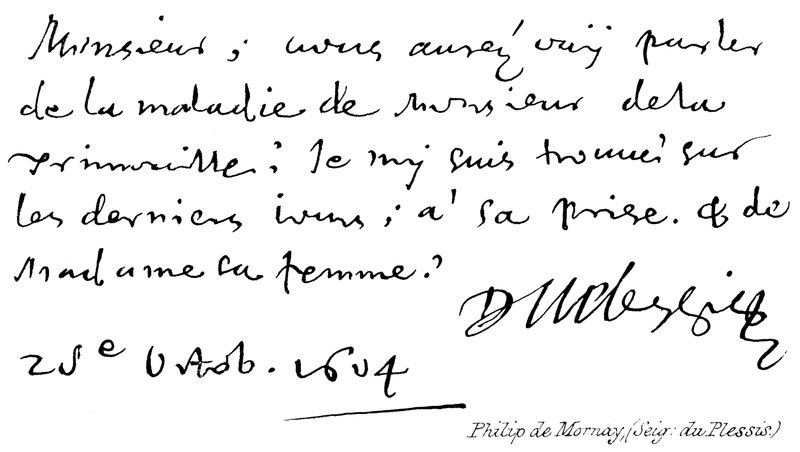 Monsieur; vous aurez ouÿ parler
de la maladie de Monsieur de la
Trimouille; Je my suis trouué sur
les derniers iours; a' sa prise. & de
Madame sa femme.
Duplessis
25e Octob. 1604
Philip de Mornay, (Seig: du Plessis.)